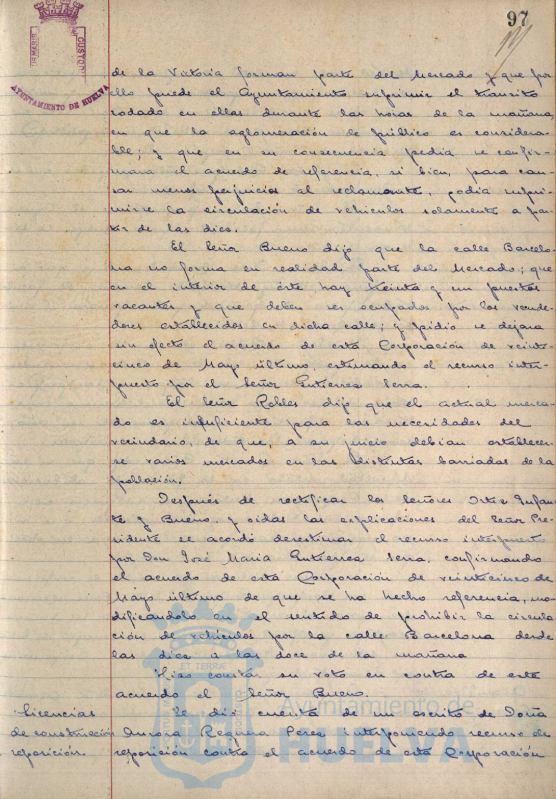 97
AYUNTAMIENTO DE HUELVA
de la Victoria forman parte del Mercado y que por
ello puede el Ayuntamiento suprimir el tránsito
rodado en ellas durante las horas de la mañana,
en que la aglomeración de público es considera-
ble; y que en su consecuencia pedia se confir-
mara el acuerdo de referencia, si bien, para cau-
sar menos perjuicios al reclamante, podia supri-
mirse la circulación de vehiculos solamente a par-
tir de las diez.
El Señor Bueno dijo que la calle Barcelo-
na no forma en realidad parte del Mercado; que
en el interior de éste hay treinta y un puestos
vacantes y que deben ser ocupados por los vende-
dores establecidos en dicha calle; y pidió se dejara
sin efecto el acuerdo de esta Corporación de veinte
cinco de Mayo último, estimando el recurso inter-
puesto por el Señor Gutierrez Serra.
El Señor Robles dijo que el actual merca-
do es insuficiente para las necesidades del
vecindario, de que, a su juicio debian establecer-
se varios mercados en las distintas barriadas de la
población.
Después de rectificar los Señores Ortiz Infan-
te y Bueno, y oidas las explicaciones del Señor Pre-
sidente se acordó desestimar el recurso interpuesto
por Don José Maria Gutierrez Serra, confirmando
el acuerdo de esta Corporación de veinticinco de
Mayo último de que se ha hecho referencia, mo-
dificandolo en el sentido de prohibir la circula-
ción de vehiculos por la calle Barcelona desde
las diez a las doce de la mañana
Hizo constar su voto en contra de este
acuerdo el Señor Bueno.
Licencias
de construcción
reposición.
Se dió cuenta de un escrito de Doña
Aurora Requena Perez interponiendo recurso de
reposición contra el acuerdo de esta Corporación
Ayuntamiento de
HUELVA